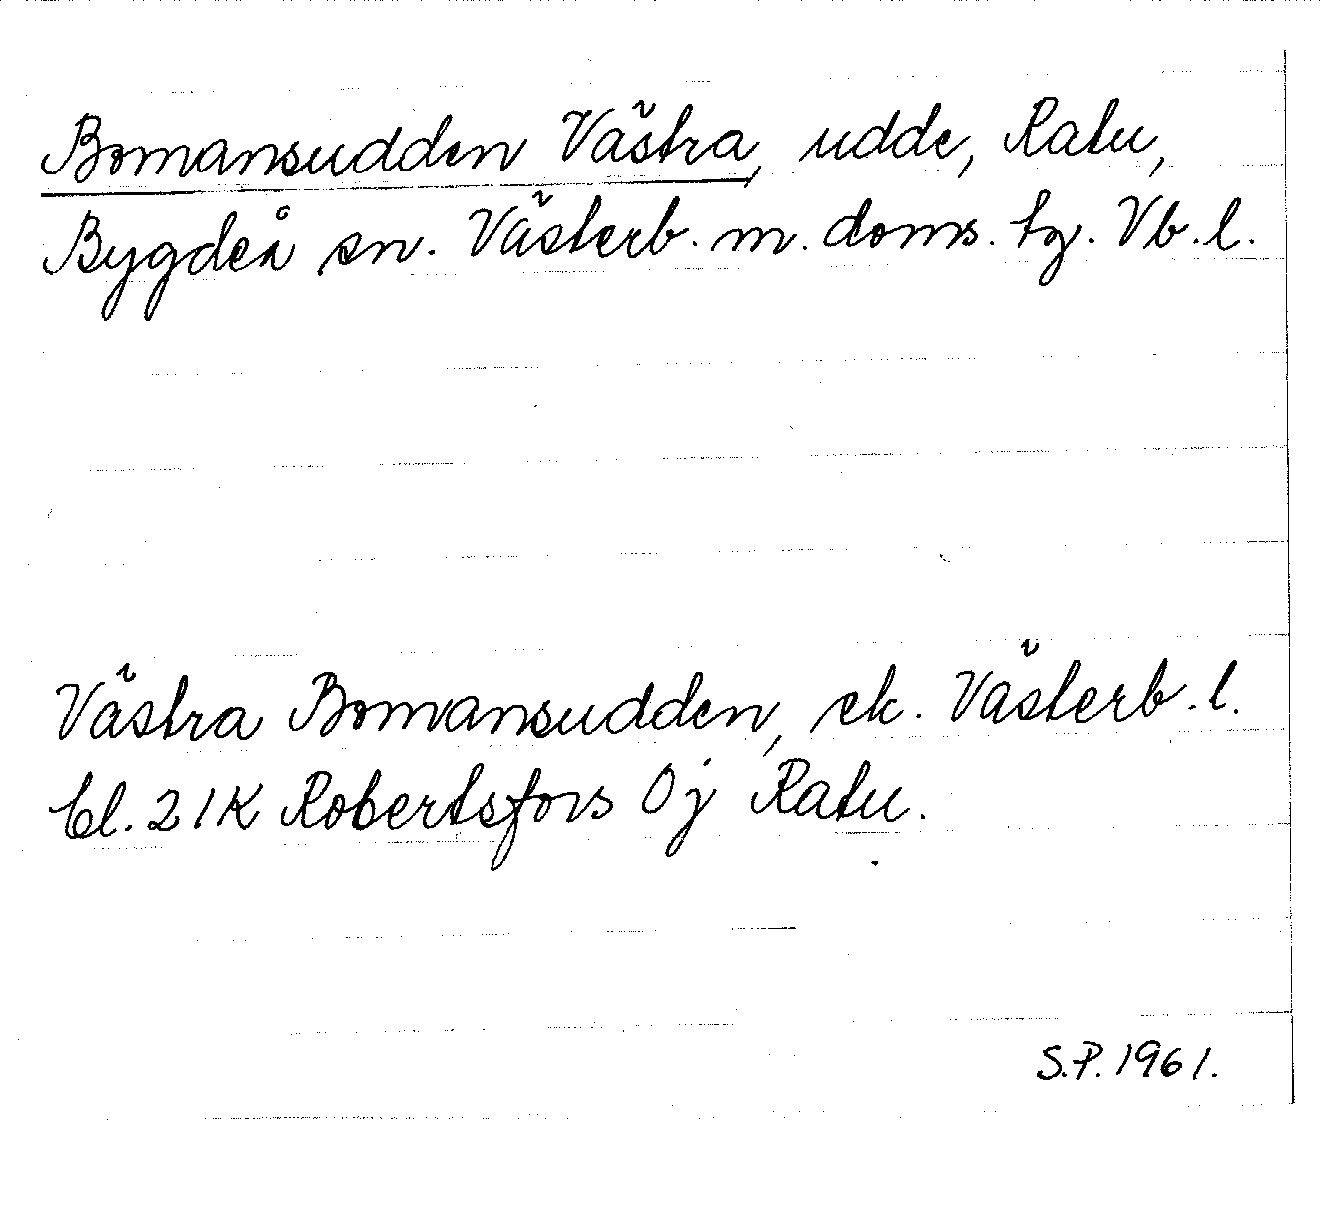 Bomansudden Västra, udde, Ratu,
Bygdeå sn. Västerb. m. doms. tg. Vb. l.
Västra Bomansudden, ek. Västerb. l.
bl. 21K Robertsfors Öj Ratu.
S.P. 1961.